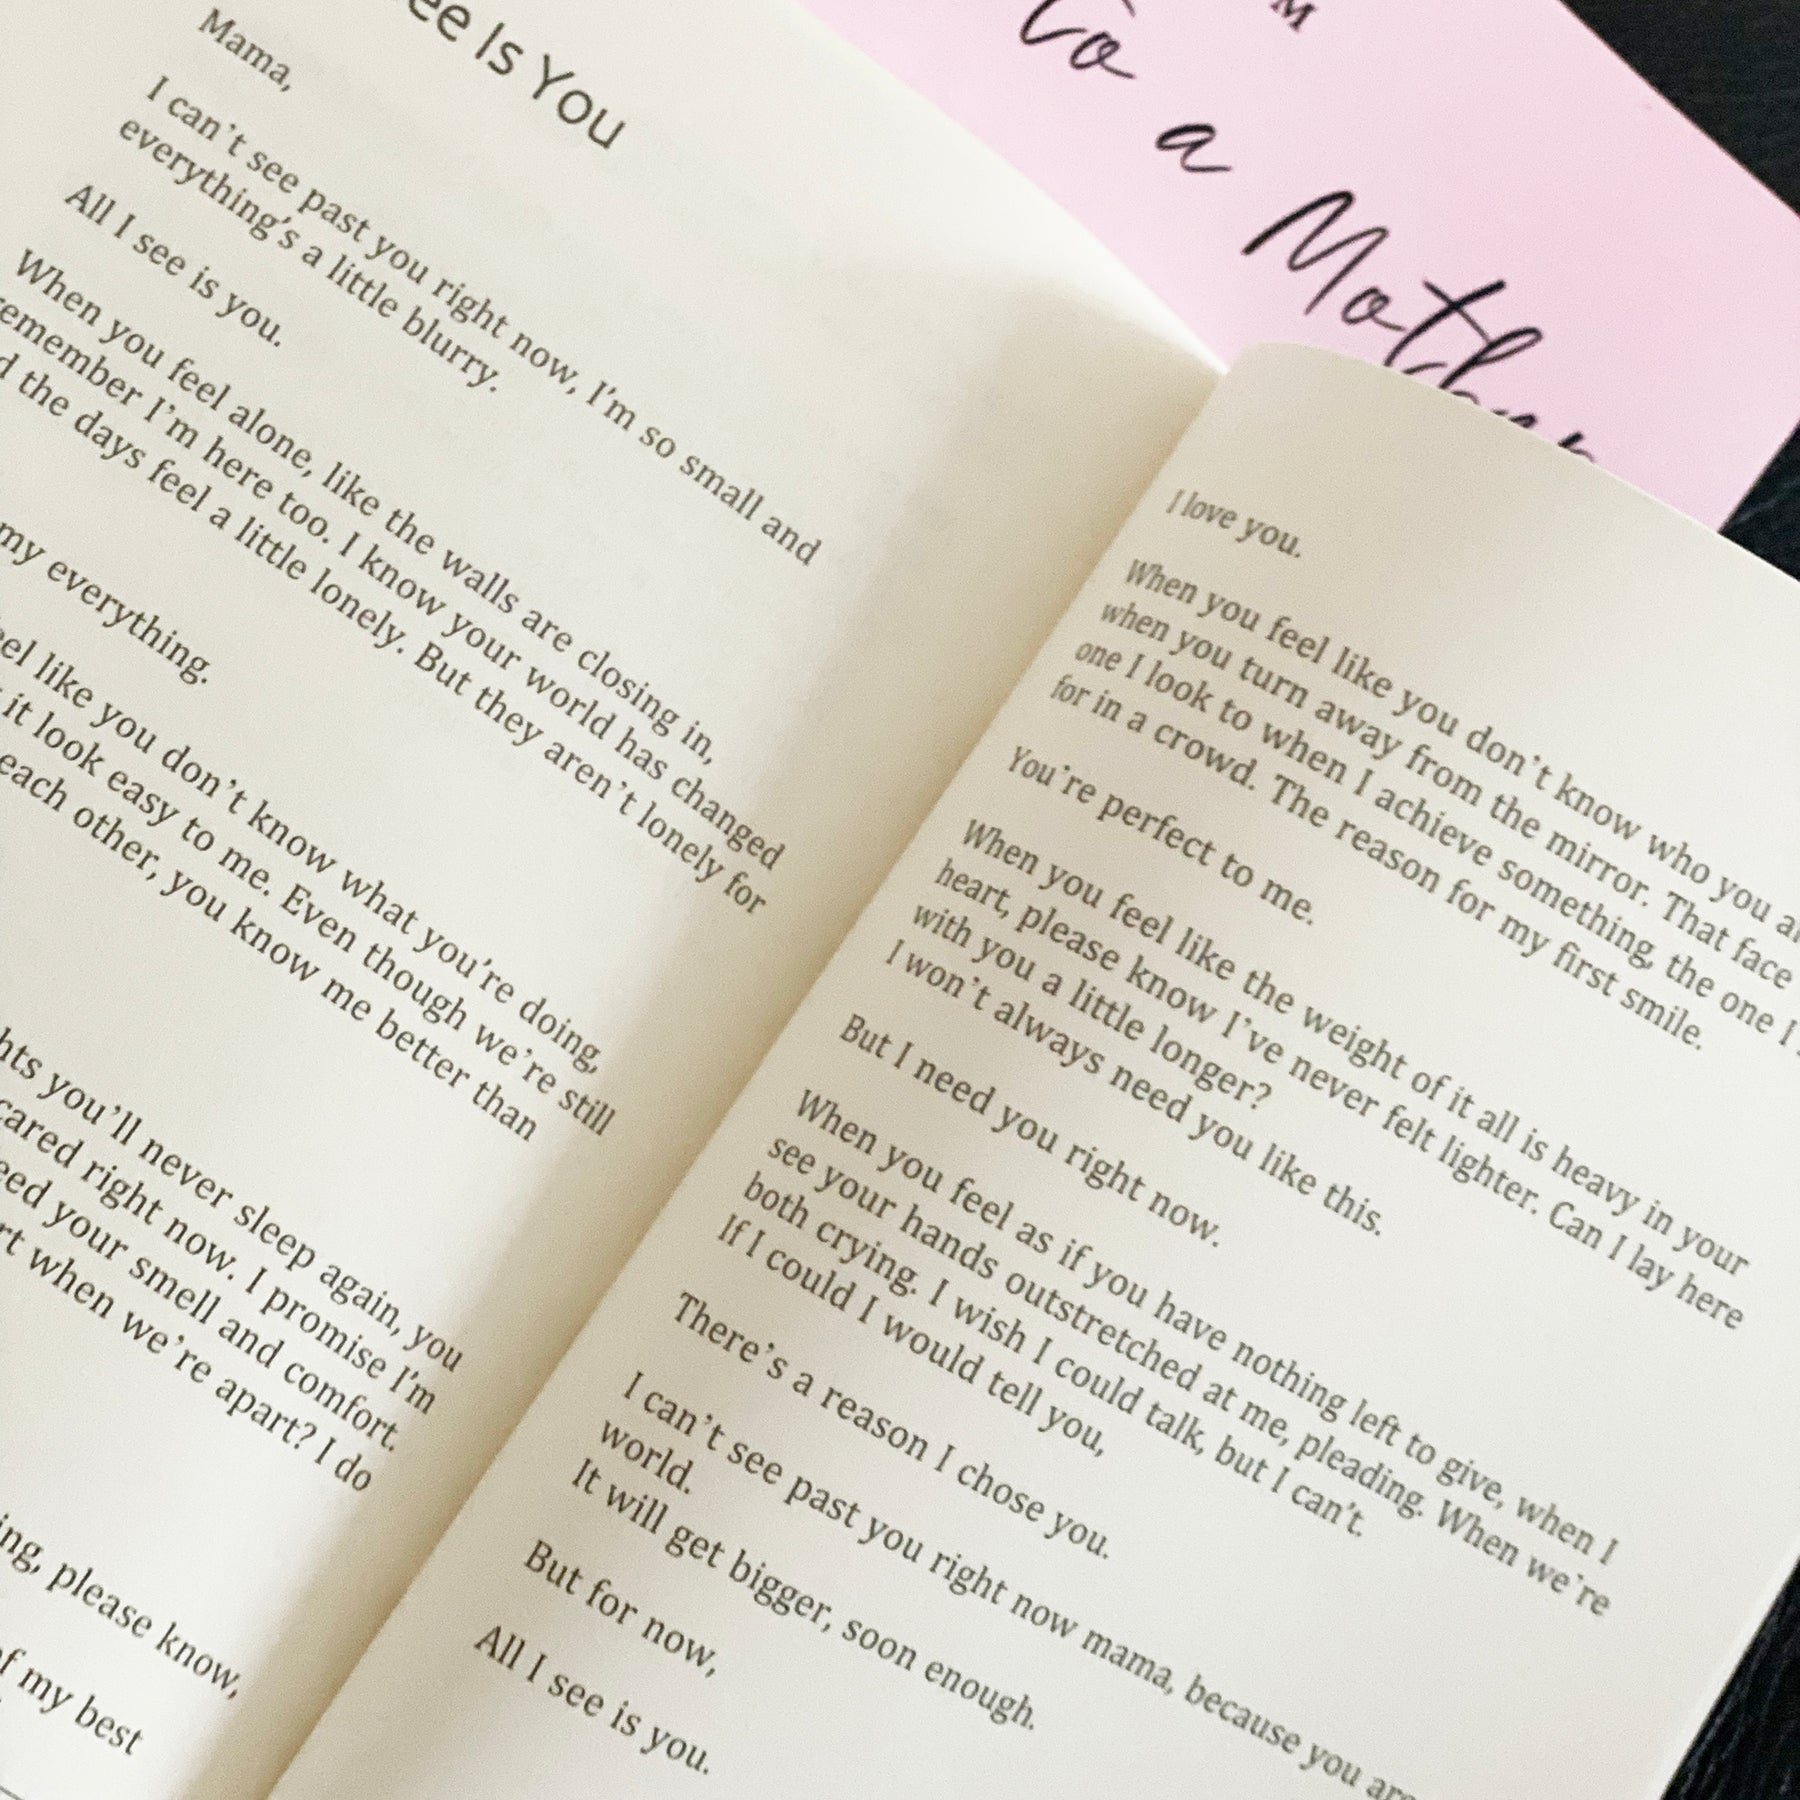 Is You
Mama,
I can't see past you right now, I'm so small and
everything's a little blurry.
All I see is you.
When you feel alone, like the walls are closing in,
remember I'm here too. I know your world has changed
the days feel a little lonely. But they aren't lonely for
my everything.
like you don't know what you're doing,
it look easy to me. Even though we're still
each other, you know me better than
you'll never sleep again, you
right now. I promise I'm
your smell and comfort.
when we're apart? I do
please know,
my best
I love you.
When you feel like you don't know who you
when you turn away from the mirror. That face
one I look to when I achieve something, the one I
for in a crowd. The reason for my first smile.
You're perfect to me.
When you feel like the weight of it all is heavy in your
heart, please know I've never felt lighter. Can I lay here
with you a little longer?
I won't always need you like this.
But I need you right now.
When you feel as if you have nothing left to give, when I
see your hands outstretched at me, pleading. When we're
both crying. I wish I could talk, but I can't.
If I could I would tell you,
There's a reason I chose you.
I can't see past you right now mama, because you are
world.
It will get bigger, soon enough.
But for now,
All I see is you.
M
to
a
Mother